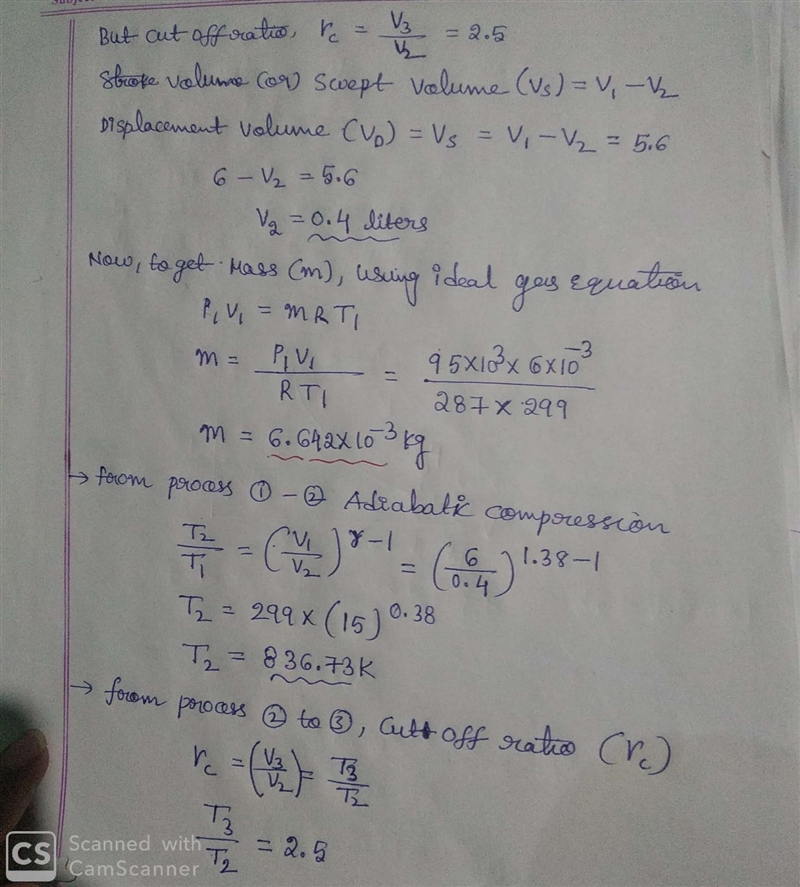 But cut off ratio, r_c = V₃/V₂ = 2.5
Stroke volume (or) Swept volume (V_S) = V₁ − V₂
Displacement volume (V_D) = V_S = V₁ − V₂ = 5.6
6 − V₂ = 5.6
V₂ = 0.4 liters
Now, to get Mass (m), using ideal gas equation
P₁V₁ = mRT₁
m = P₁V₁/RT₁ = 95×10³×6×10⁻³/287×299
m = 6.642×10⁻³ kg
→ from process ① – ② Adiabatic compression
T₂/T₁ = (V₁/V₂)^γ−1 = (6/0.4)^1.38−1
T₂ = 299 × (15)^0.38
T₂ = 836.73K
→ from process ② to ③, Cutt off ratio (r_c)
r_c = (V₃/V₂) = T₃/T₂
T₃/T₂ = 2.5
CS Scanned with
CamScanner